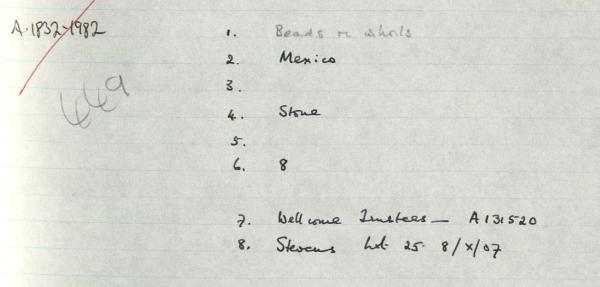 A·1832-1982
449
1. Beads or whorls
2. Mexico
3.
4. Stone
5.
6. 8
7. Wellcome Trustees — A131520
8. Stevens Lot 25 8/X/07